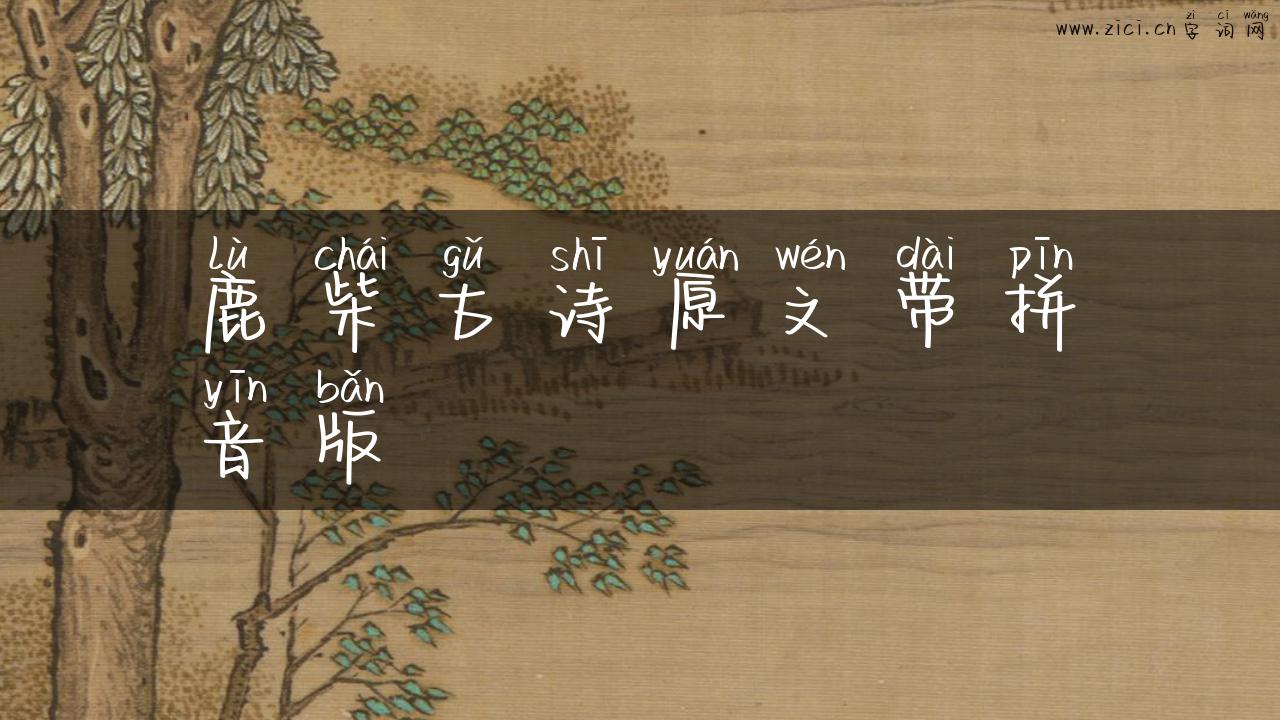 zì cí wǎng
www.zici.cn 字词网
lù chái gǔ shī yuán wén dài pīn
鹿柴古诗原文带拼
yīn bǎn
音版